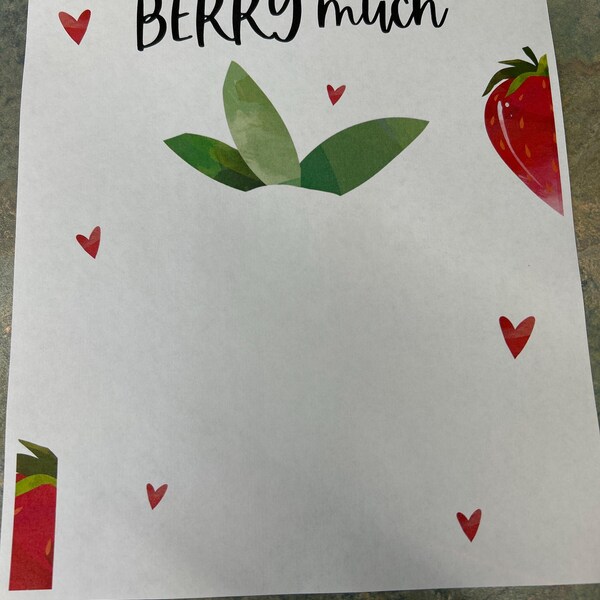 BERRY much